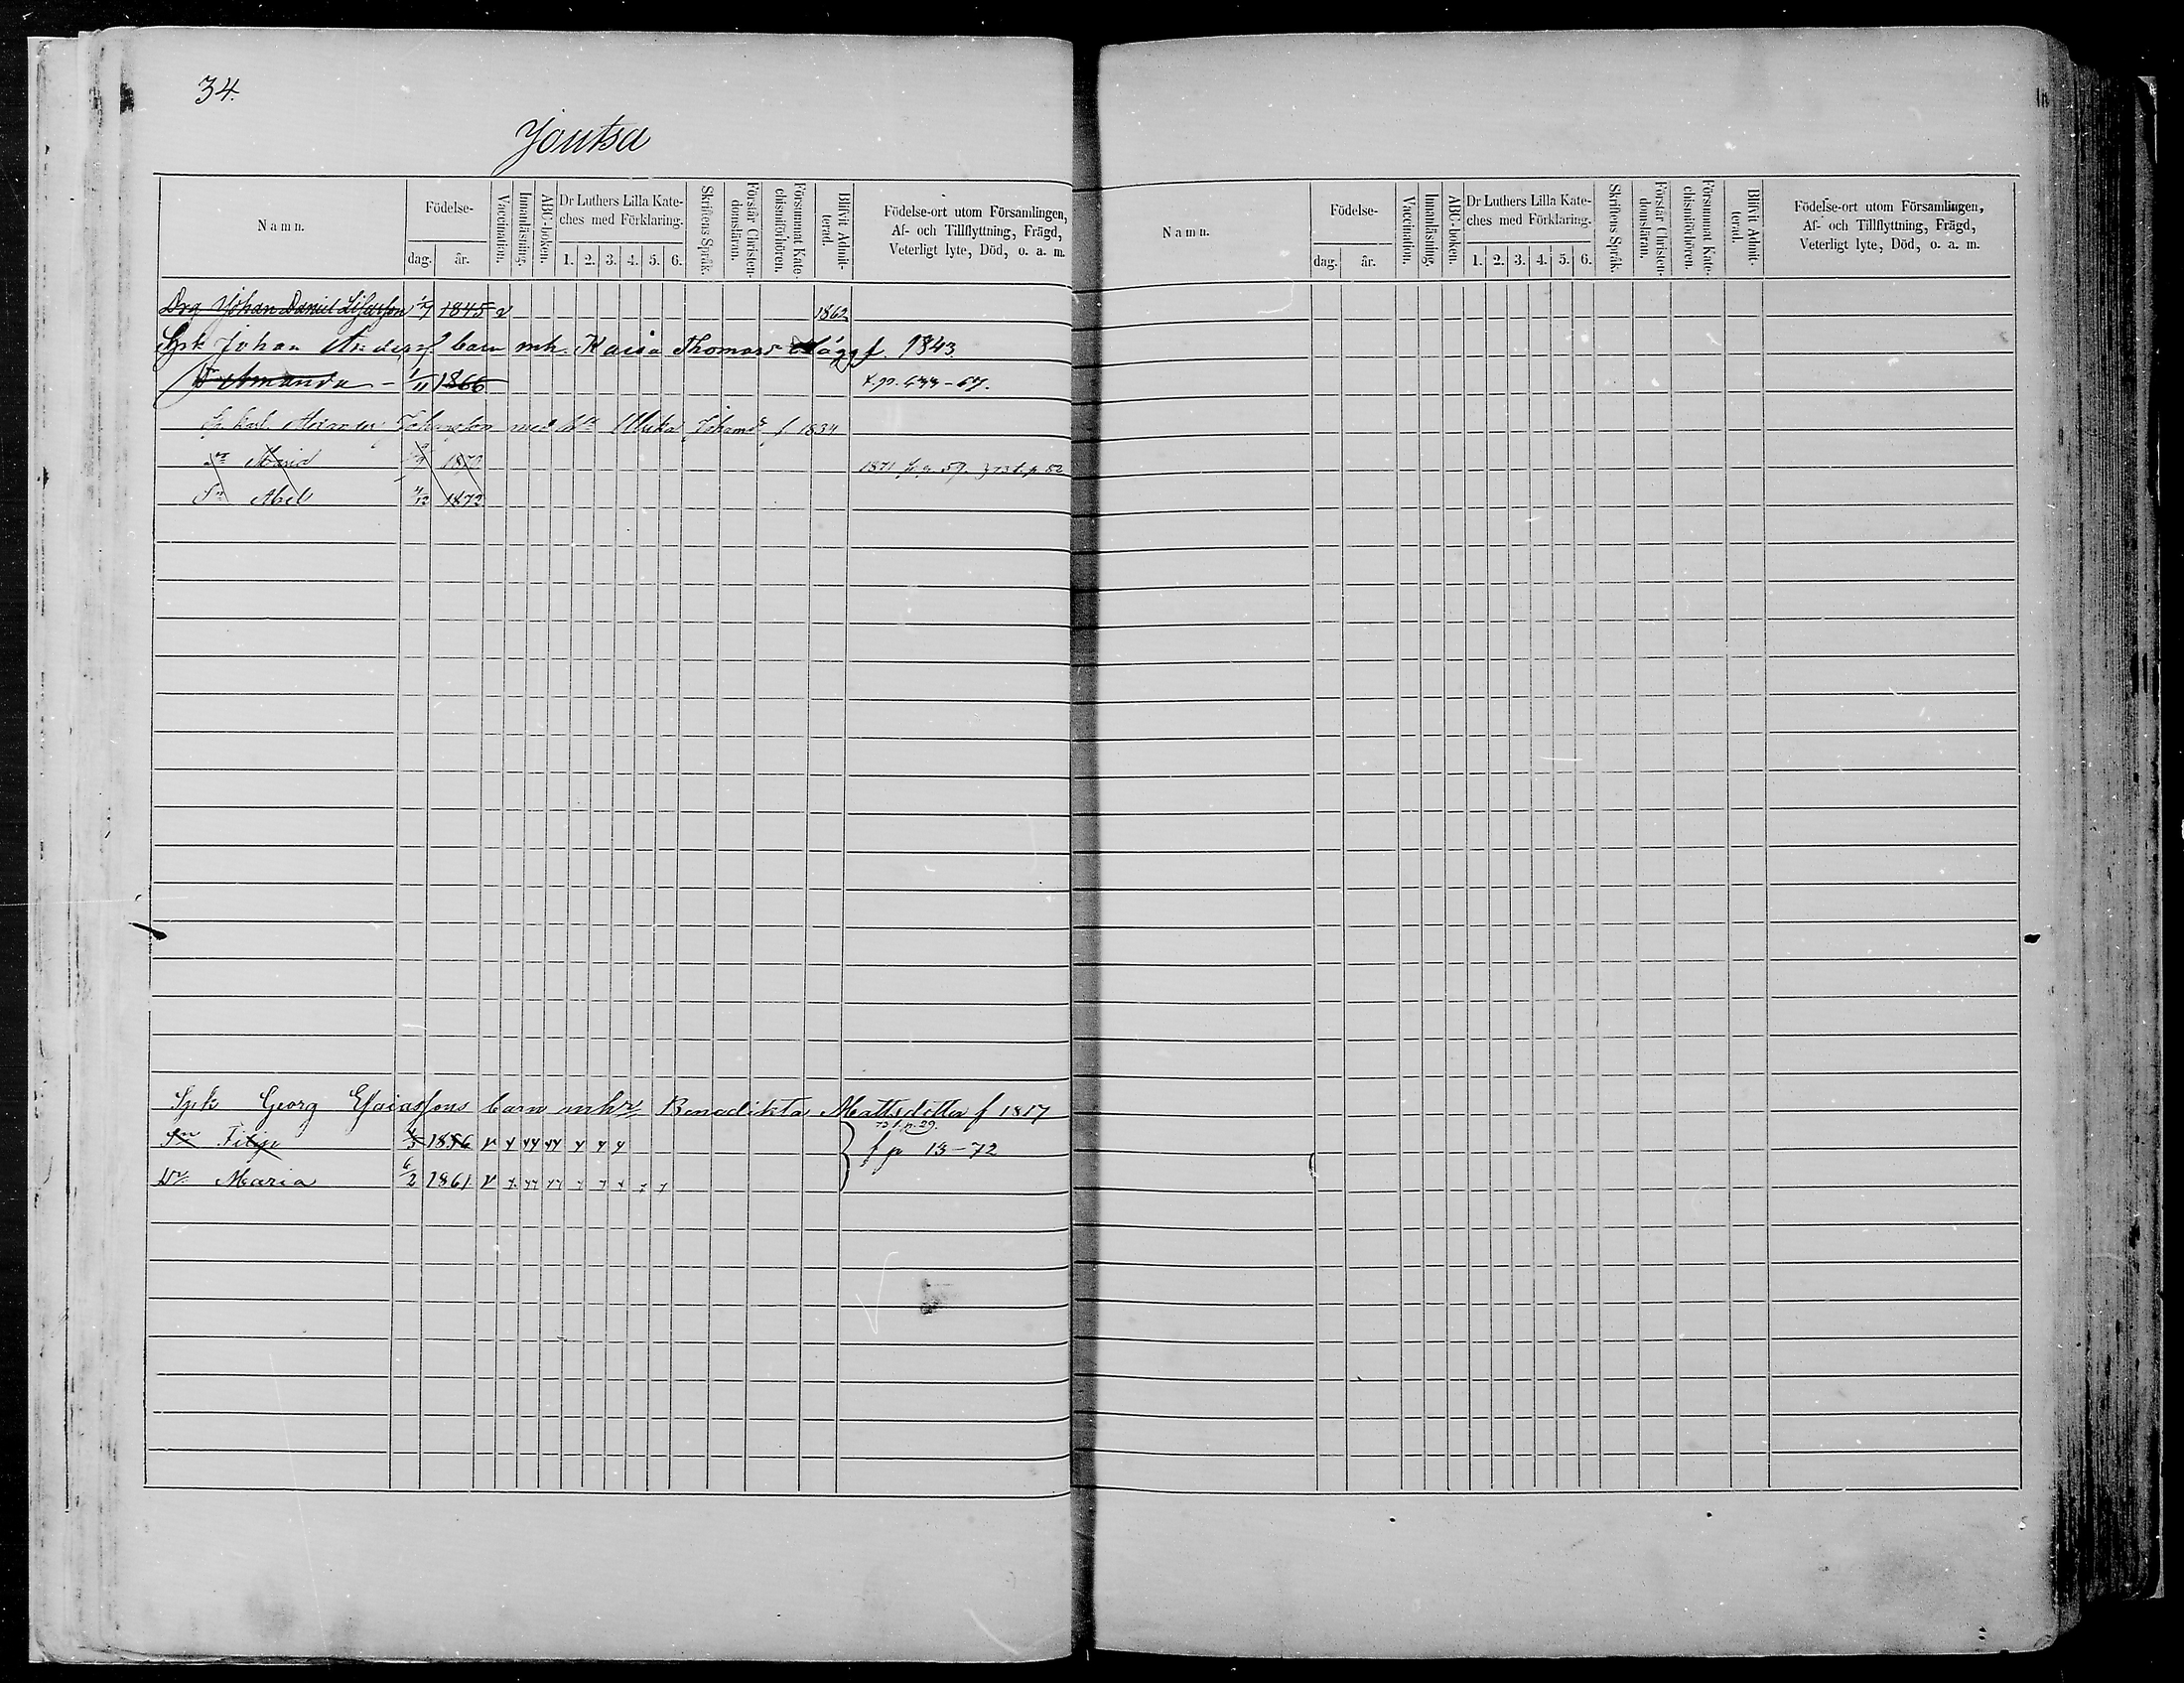 34.
Joutsa
Namn. Födelse- dag. år. Vaccination. Innanläsning. ABC-boken. Dr Luthers Lilla Kate-ches med Förklaring. 1. 2. 3. 4. 5. 6. Skriftens Språk. Förstår Christen-domsläran. Försummat Kate-chismiförhören. Blifvit Admit-terad. Födelse-ort utom Församlingen, Af- och Tillflyttning, Frägd, Veterligt lyte, Död, o. a. m.
Drg Johan Daniel 1845 v 1862
Spk Johan Anders barn mh. Kaisa Thomasd f. 1843
Dr Amanda 1/11 1866 633-67.
Karl Alexander Johansson med Ulrika Johansd f. 1834
Maria 1871 p. 59. 73 f. p 52
Sn Abel 4/12 1872
Spk Georg Esaiassons barn mh Benedikta Mattsdotter f 1817
73 f. p. 29.
Sn Filip 1856 v f p 13-72
Dr Maria 6/2 1861 v
Namn. Födelse- dag. år. Vaccination. Innanläsning. ABC-boken. Dr Luthers Lilla Kate-ches med Förklaring. 1. 2. 3. 4. 5. 6. Skriftens Språk. Förstår Christen-domsläran. Försummat Kate-chismiförhören. Blifvit Admit-terad. Födelse-ort utom Församlingen, Af- och Tillflyttning, Frägd, Veterligt lyte, Död, o. a. m.